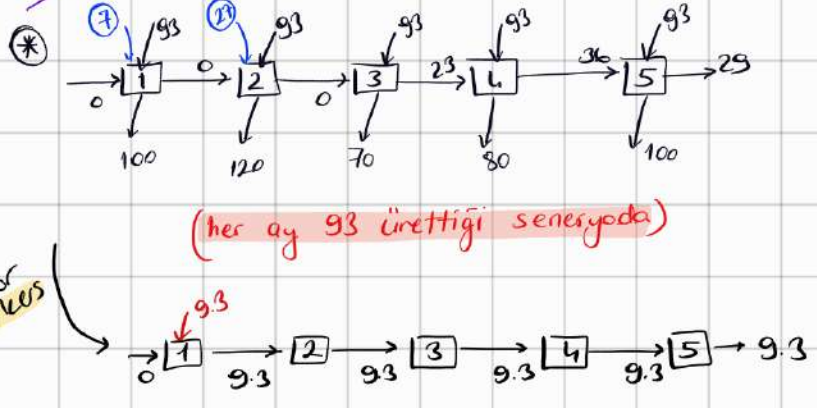 7 93 27 93 93 93 93
* 0 1 0 2 0 3 23 4 36 5 29
100 120 70 80 100
(her ay 93 ürettiği seneryoda)
or
kers
9.3
0 1 9.3 2 9.3 3 9.3 4 9.3 5 9.3